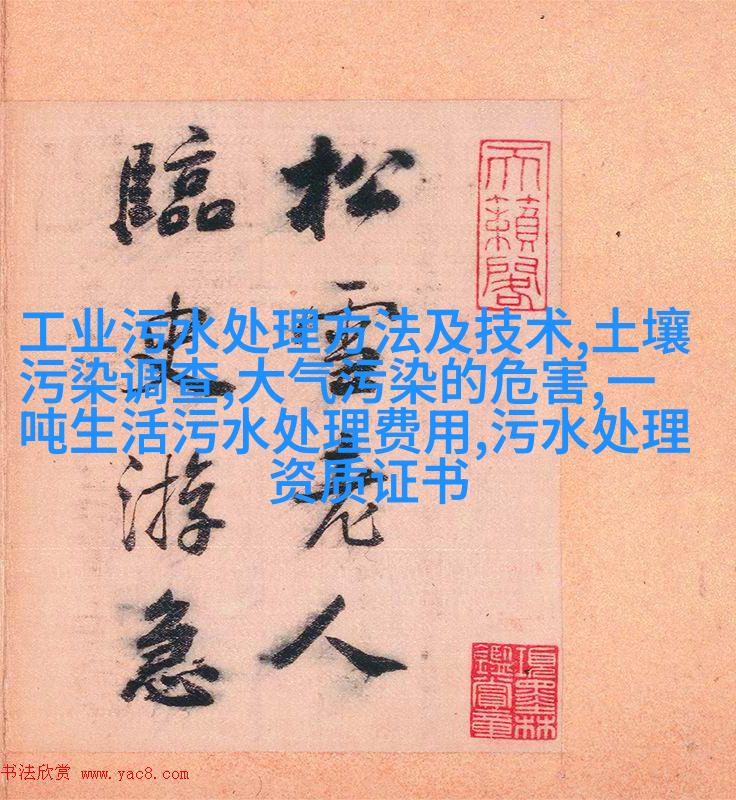 天籟閣
松雪
人
臨史游急
項墨林
鑑賞章
工业污水处理方法及技术,土壤
污染调查,大气污染的危害,一
吨生活污水处理费用,污水处理
资质证书
书法欣赏 www.yac8.com